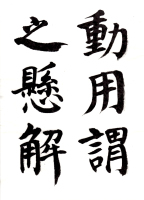 動用謂
之懸解